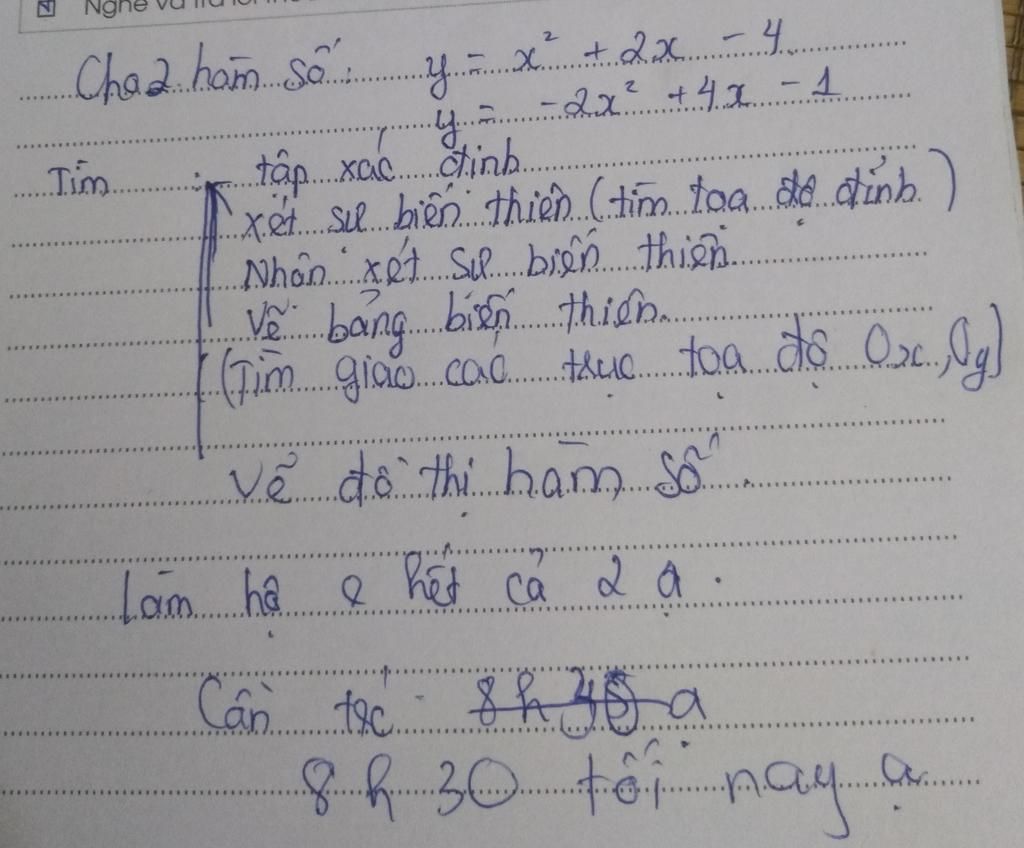 Cho 2 hàm số: y = x² + 2x - 4
y = -2x² + 4x - 1
Tìm tập xác định
xét sự biến thiên (tìm tọa độ đỉnh)
Nhận xét sự biến thiên
Vẽ bảng biến thiên
(Tìm giao các trục tọa độ Ox, Oy)
Vẽ đồ thị hàm số.
Làm hộ e hết cả 2 ạ.
Cần trc ạ
8h30 tối nay ạ